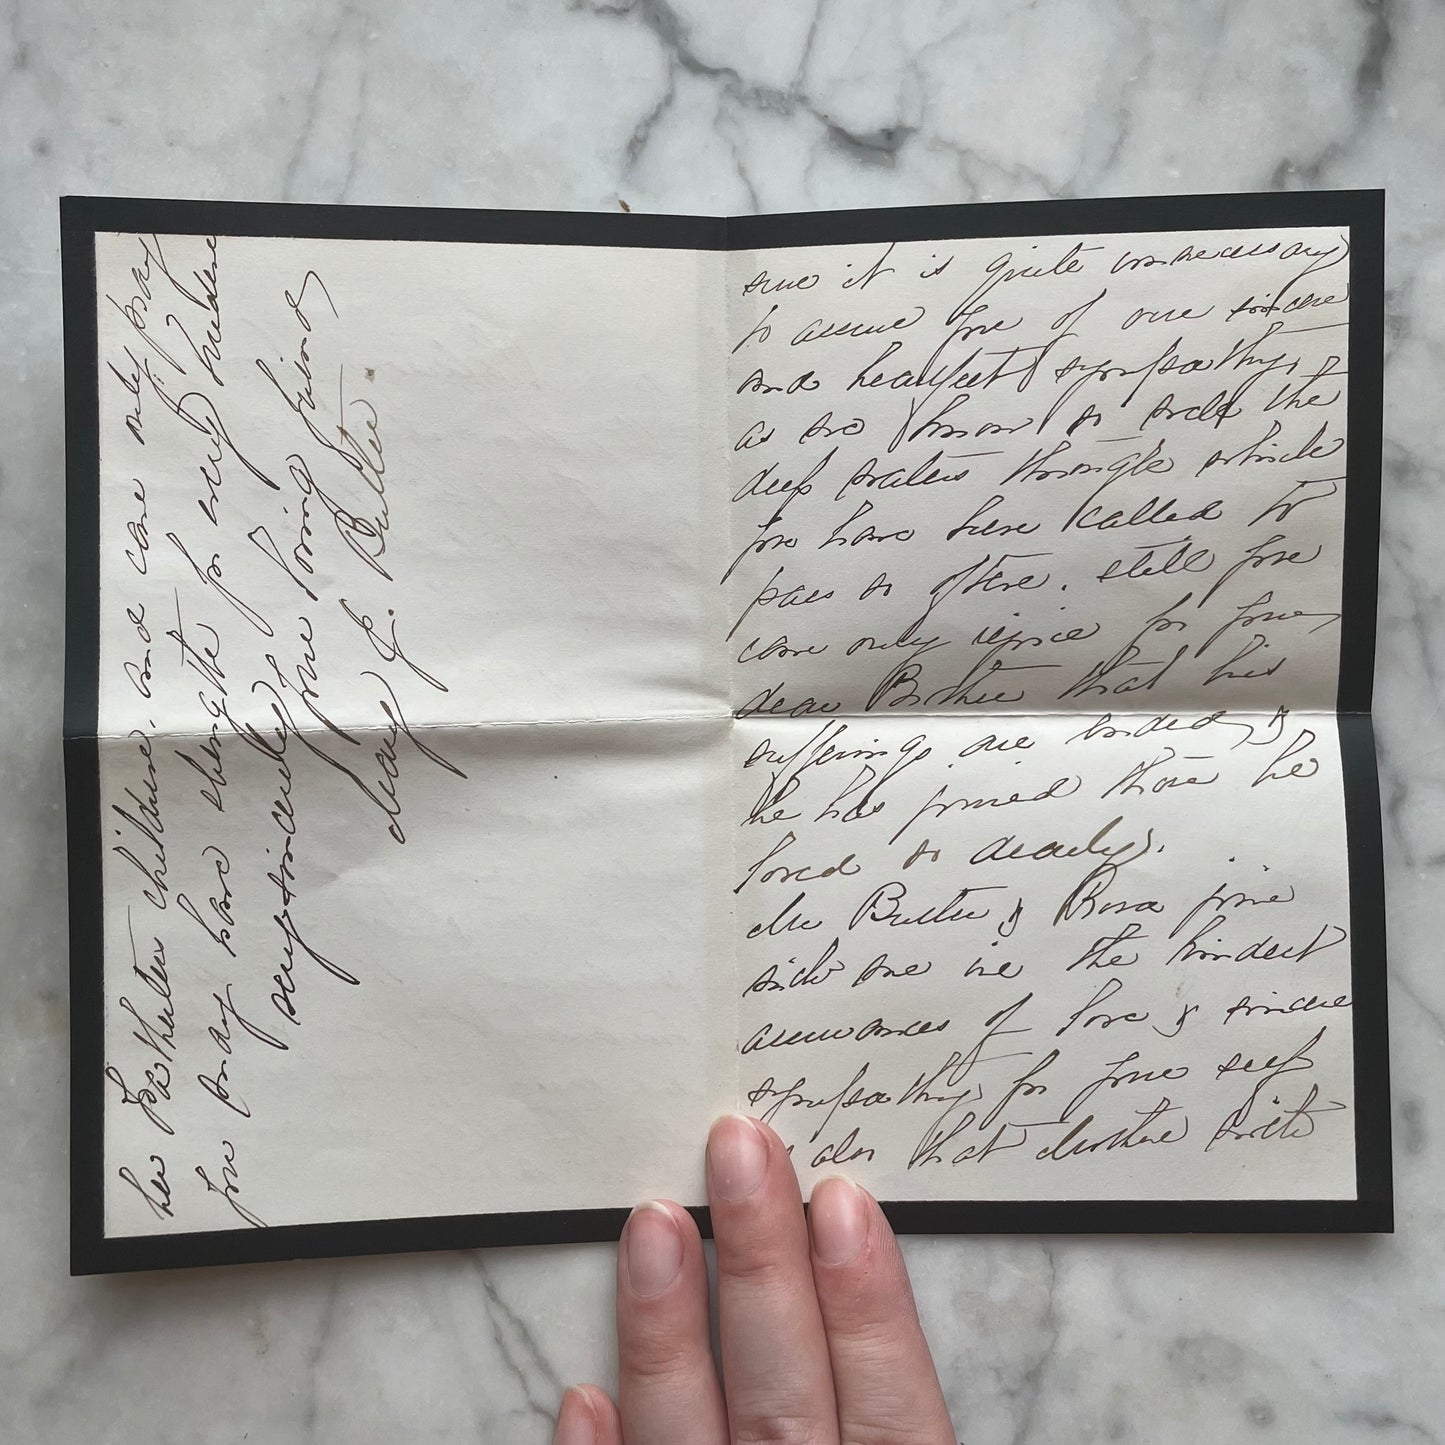 sure it is quite unnecessary
to assure you of our sincere
and heartfelt sympathy,
as we know so well the
deep waters through which
you have been called to
pass so often. still you
can only rejoice for your
dear Brother that his
sufferings are ended, &
he has joined those he
loved so dearly.
Mr Butler & Rosa join
with me in the kindest
assurances of love & sincere
sympathy for your self
also that Mother with
her Fatherless children, and can only pray
you may have strength for every burden
very sincerely
your loving friend
Mary J. Butler.